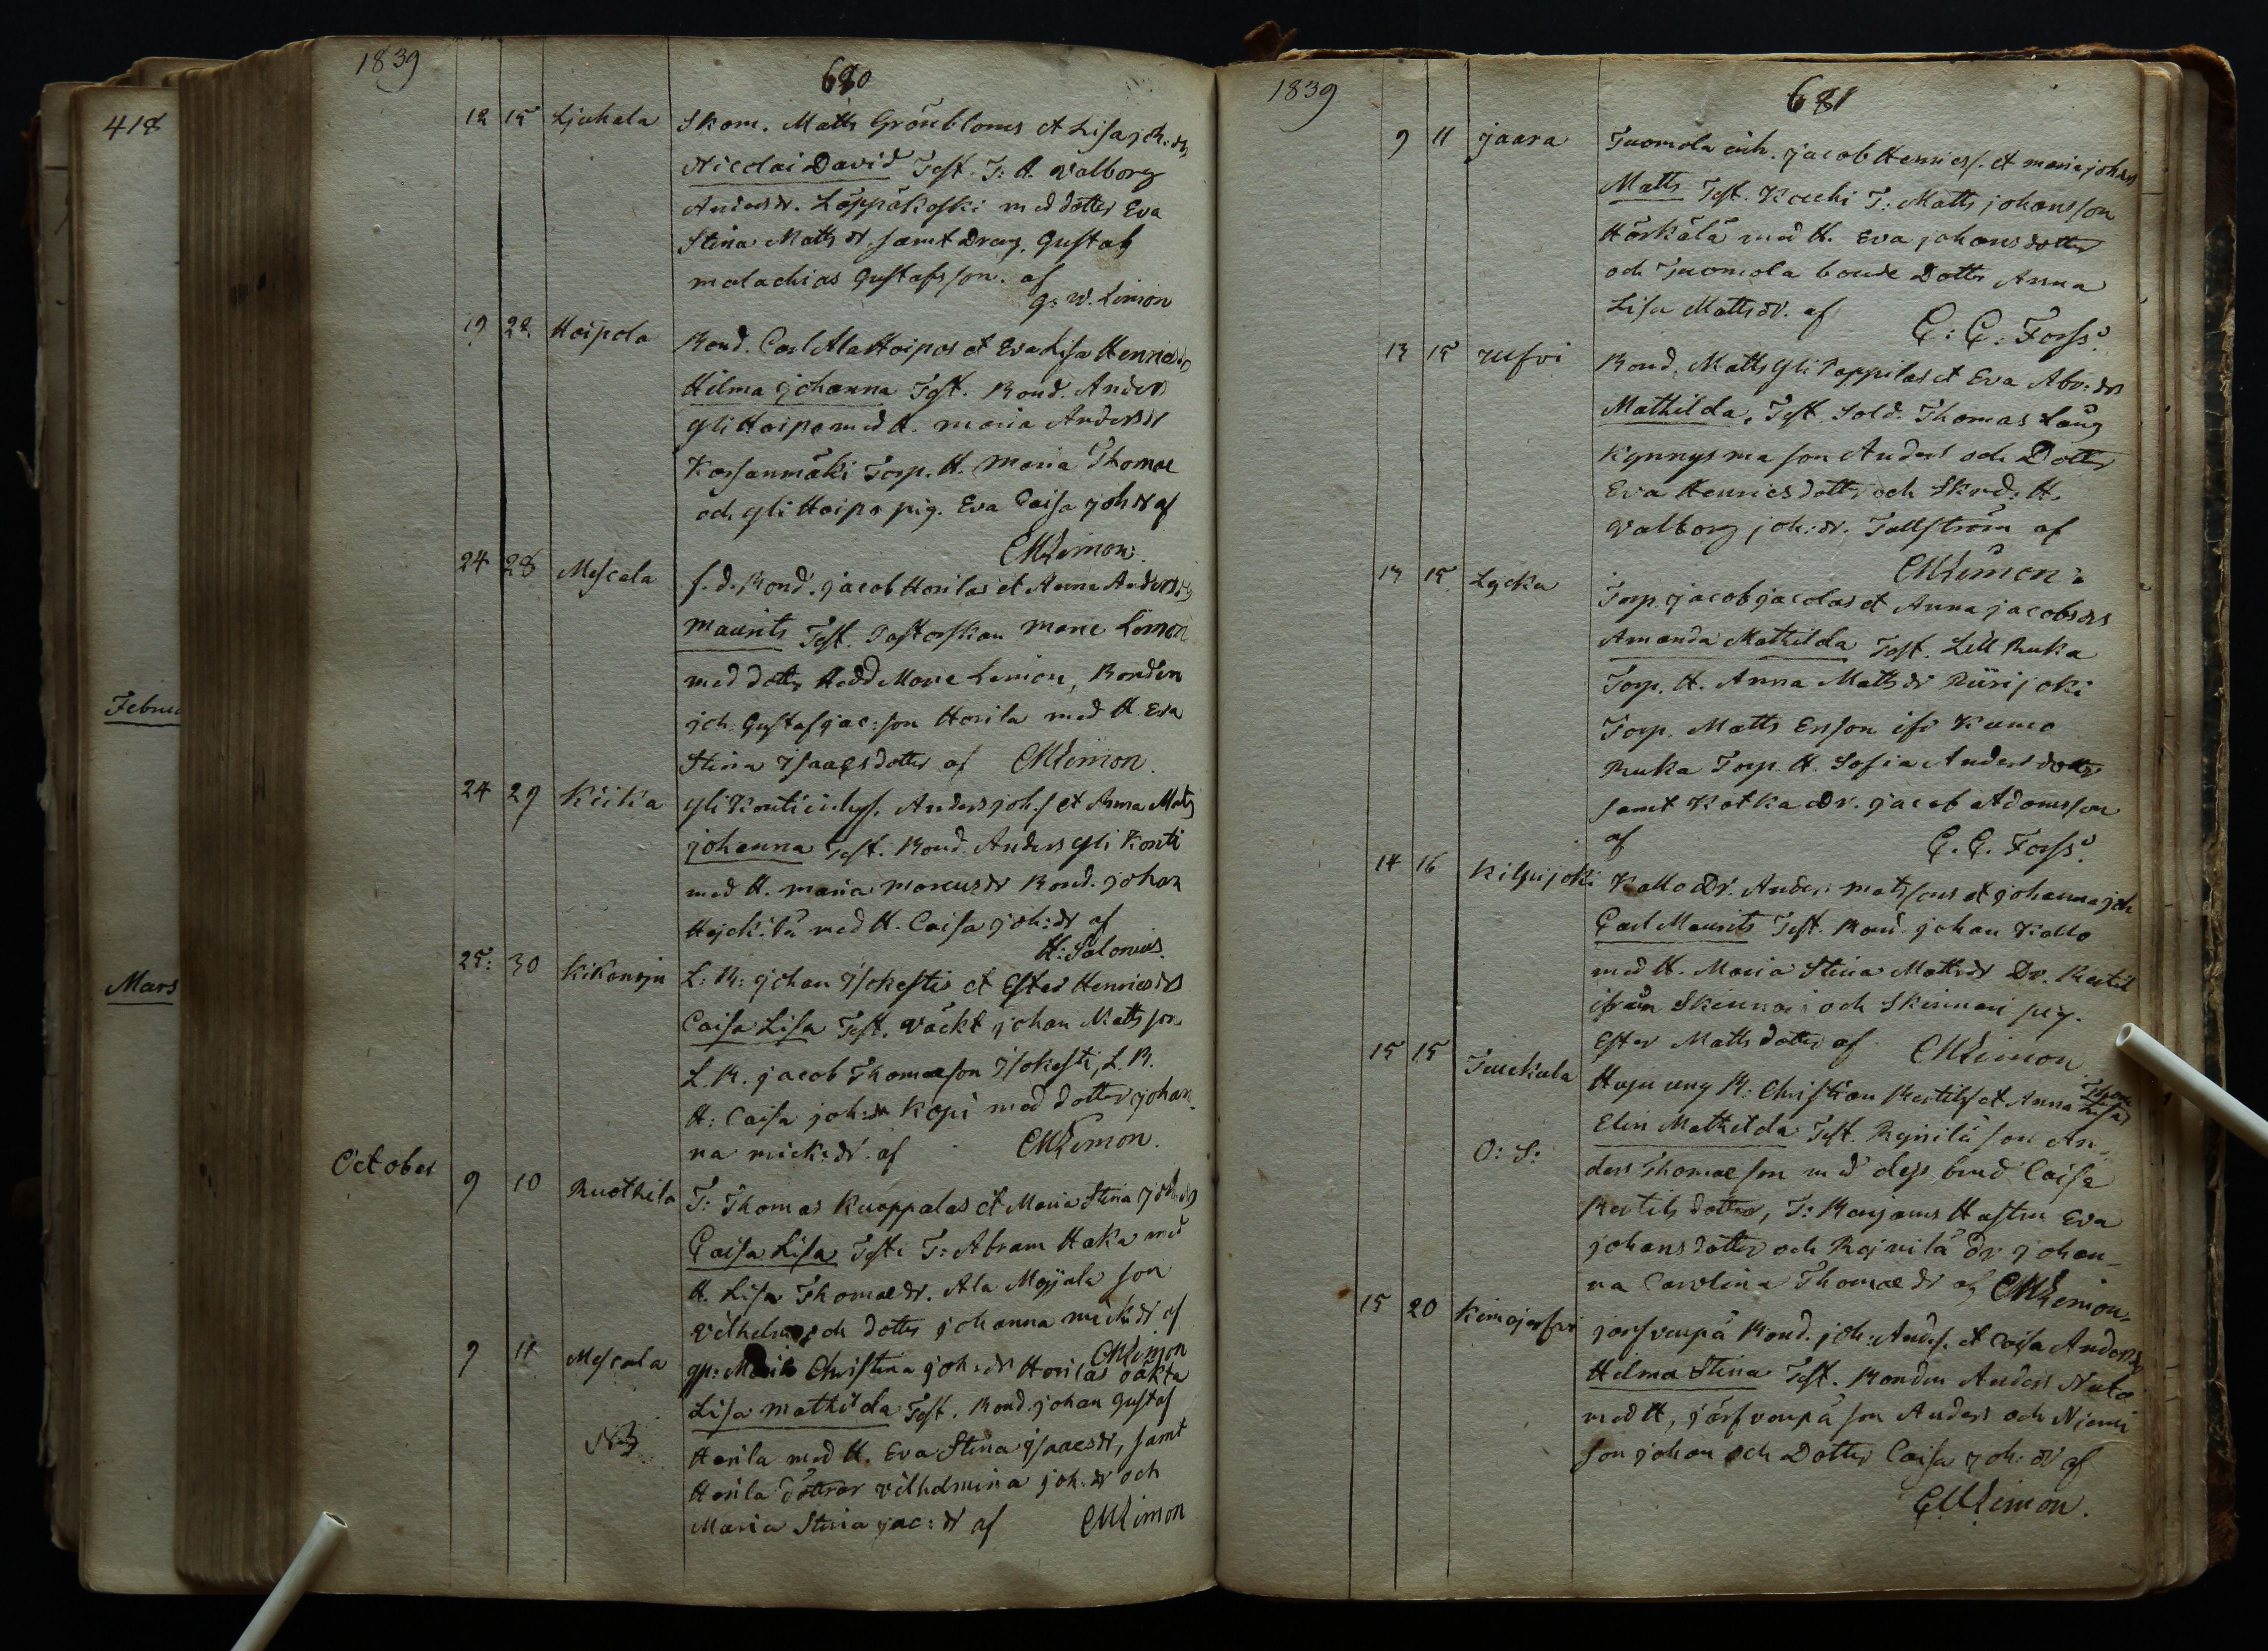 418
Februa
Mars
1839
680
12 15 Ljuhala Skom. Matts Grönbloms et Lisa joh: dr
Nicolai David Test. T: H. Valborg
Andersdr. Löppäkoski med dotter Eva
Stina Matts dr samt Dräng. Gustaf
malachias Gustafsson. af
G. W. Limon
19 22 Hoipola Bond. Carl Ala Hoipos et Eva Lisa Henricsdr
Hilma johanna Test. Bond. Anders
yli Hoipo med H. maria Andersdr
Korsanmäki Torp. H. Maria Thomae
och yli Hoipo pig. Eva Caisa joh dr af
CMLimon
24 28 Mescala f.d. Bond. jacob Horilas et Anna Anders dr
Maurits Test. Pastorskan Marie Limon
med dotter Hedd Marie Limon, Bonden
joh. Gustaf jac: son Horila med H. Eva
Stina Isaacsdotter af CMLimon.
24 29 Kiikka yli Konti Anders joh. s et Anna Mats
johanna Test. Bond. Anders yli Konti
med H. maria marcusdr Bond. johan
Hejkilä med H. Caisa joh: dr af
H: Salonius.
25: 30 Kikonoja L: B: johan Isokestis et Ester Henricsdr
Caisa Lisa Test. Väckt johan Mattsson
L. B. jacob Thomaeson Isokesti, L. B.
H: Caisa joh: dr Kopi med dotter johan
na mick: dr. af CMLimon.
October
9 10 Ruothila T: Thomas Kuoppalas et Maria Stina joh dr
Caisa Lisa Test: T: Abram Haka med
H. Lisa Thomaedr. Ala Mojjala son
Vilhelm och dotter johanna mick: dr af
CMLimon
9 11 Mescala gp: Maria Christina joh: dr Horilas oäkta
Lisa Mathilda Test. Bond. johan Gustaf
NB Horila med H. Eva Stina Isaacsdr, samt
Horila döttrar vilhelmina joh. dr och
Maria Stina jac: dr af CMLimon
1839
681
9 11 jaara Tuomola inh. jacob Henrics s. et maria johans
Matts Test. Kouhi T: Matts johansson
Härkälä med H. Eva johansdotter
och Tuomola bonde Dotter Anna
Lisa Mattsdr. af
C: C: Forss.
13 15 Rusvi Bond. Matts yli Pappilas et Eva Abr: dr
Mathilda, Test. Sold. Thomas Lång
Kynnysma son Anders och Dotter
Eva Henricsdotter och Skrd. H.
Valborg joh: dr. Tallström af
CMLimon
13 15 Lycka Torp. jacob jacolas et Anna jacobsdr
Amanda Mathilda Test. Lill Ruka
Torp. H. Anna Matts dr Piirijoki
Torp. Matts Ersson ifr Kumo
Ruka Torp. H. Sofia Andersdotter
samt Kotka Dr. jacob Adamsson
af C. C. Forss.
14 16 Kilpijoki Kallo Dr. Anders Matssons et johanna joh
Carl Maurits Test. Bond. johan Kallo
med H. Maria Stina Mattsdr Dr. Bertil
ifrån Skinnari och Skinnari pig.
Ester Mattsdotter af CMLimon
15 15 Tuickula Huju ung B. Christian Bertils et Anna Lisa Thom
Elin Mathilda Test. Rejnilä son An-
O: S: ders Thomaeson med dess brud Caisa
Bertilsdotter, T: Benjams Hustru Eva
johansdotter och Rejnilä dr johan-
na Carolina Thomae dr af CMLimon
15 20 Kemojerfvi jerfvenpä Bond. joh: Anders. et Caisa Andersdr
Hilma Stina Test. Bonden Anders Nuto
med H, järfvenpä son Anders och Niemi
son johan och Dotter Caisa joh: dr af
CMLimon.